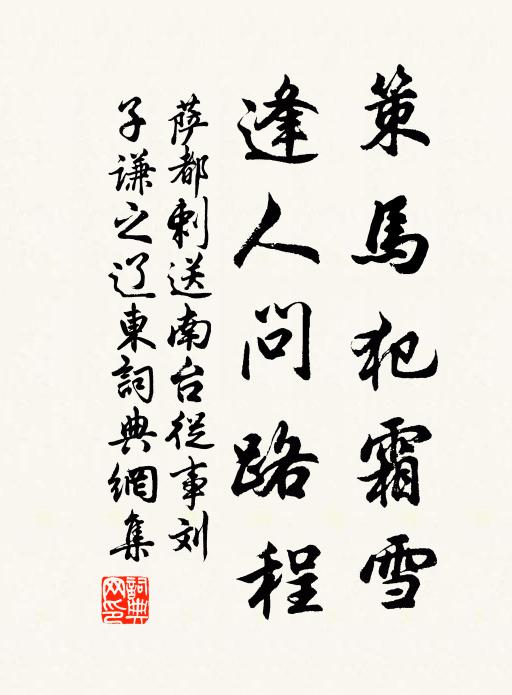 策馬犯霜雪
逢人問路程
萨都剌送南台從事刘
子謙之辽東詞典網集
詞典
网印